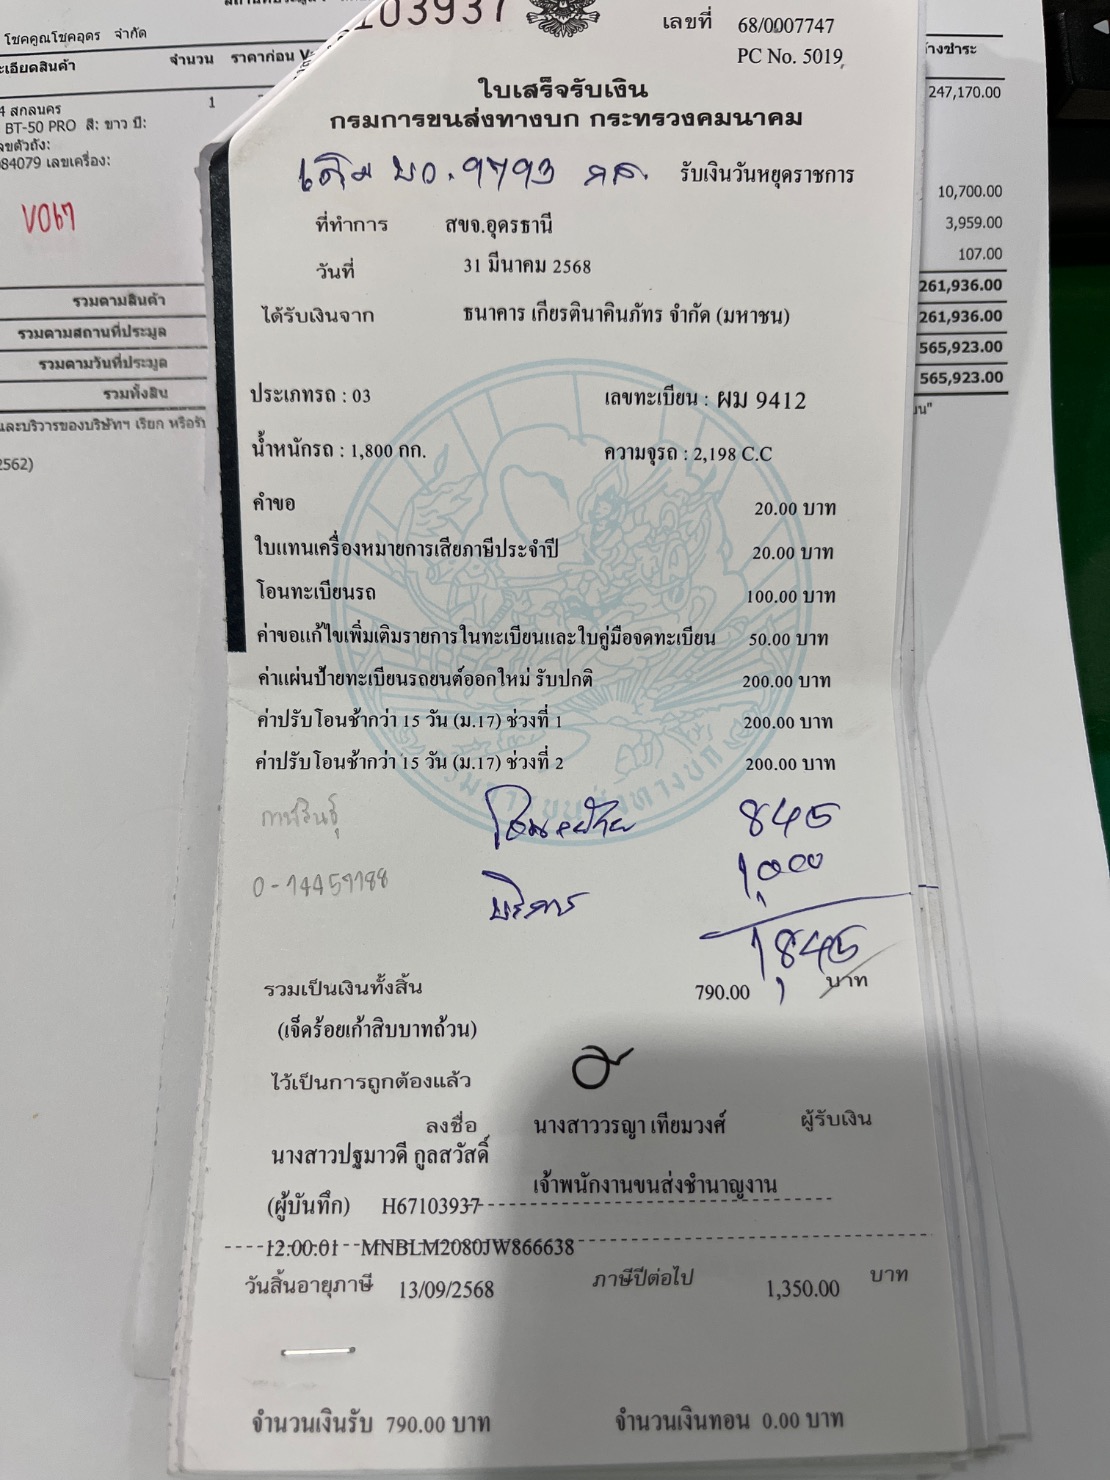 103937
เลขที่ 68/0007747
PC No. 5019
ใบเสร็จรับเงิน
กรมการขนส่งทางบก กระทรวงคมนาคม
เดิม บด.9793 รับเงินวันหยุดราชการ
ที่ทำการ สขจ.อุดรธานี
วันที่ 31 มีนาคม 2568
ได้รับเงินจาก ธนาคาร เกียรตินาคินภัทร จำกัด (มหาชน)
ประเภทรถ : 03 เลขทะเบียน : ผม 9412
น้ำหนักรถ : 1,800 กก. ความจุรถ : 2,198 C.C
คำขอ 20.00 บาท
ใบแทนเครื่องหมายการเสียภาษีประจำปี 20.00 บาท
โอนทะเบียนรถ 100.00 บาท
ค่าขอแก้ไขเพิ่มเติมรายการในทะเบียนและใบคู่มือจดทะเบียน 50.00 บาท
ค่าแผ่นป้ายทะเบียนรถยนต์ออกใหม่ รับปกติ 200.00 บาท
ค่าปรับโอนช้ากว่า 15 วัน (ม.17) ช่วงที่ 1 200.00 บาท
ค่าปรับโอนช้ากว่า 15 วัน (ม.17) ช่วงที่ 2 200.00 บาท
845
1,000
บริการ
1,845
รวมเป็นเงินทั้งสิ้น 790.00 บาท
(เจ็ดร้อยเก้าสิบบาทถ้วน)
ไว้เป็นการถูกต้องแล้ว
ลงชื่อ นางสาววรญา เทียมวงศ์ ผู้รับเงิน
นางสาวปฐมาวดี กูลสวัสดิ์
เจ้าพนักงานขนส่งชำนาญงาน
(ผู้บันทึก) H67103937
12:00:01 MNBLM2080JW866638
วันสิ้นอายุภาษี 13/09/2568 ภาษีปีต่อไป 1,350.00 บาท
จำนวนเงินรับ 790.00 บาท จำนวนเงินทอน 0.00 บาท
โชคคูณโชคอุดร จำกัด
จำนวน ราคาก่อน
1
4 สกลนคร
BT-50 PRO สี: ขาว ปี:
84079 เลขเครื่อง:
V067
รวมตามสินค้า
รวมตามสถานที่ประมูล
รวมตามวันที่ประมูล
รวมทั้งสิ้น
2562)
247,170.00
10,700.00
3,959.00
107.00
261,936.00
261,936.00
565,923.00
565,923.00